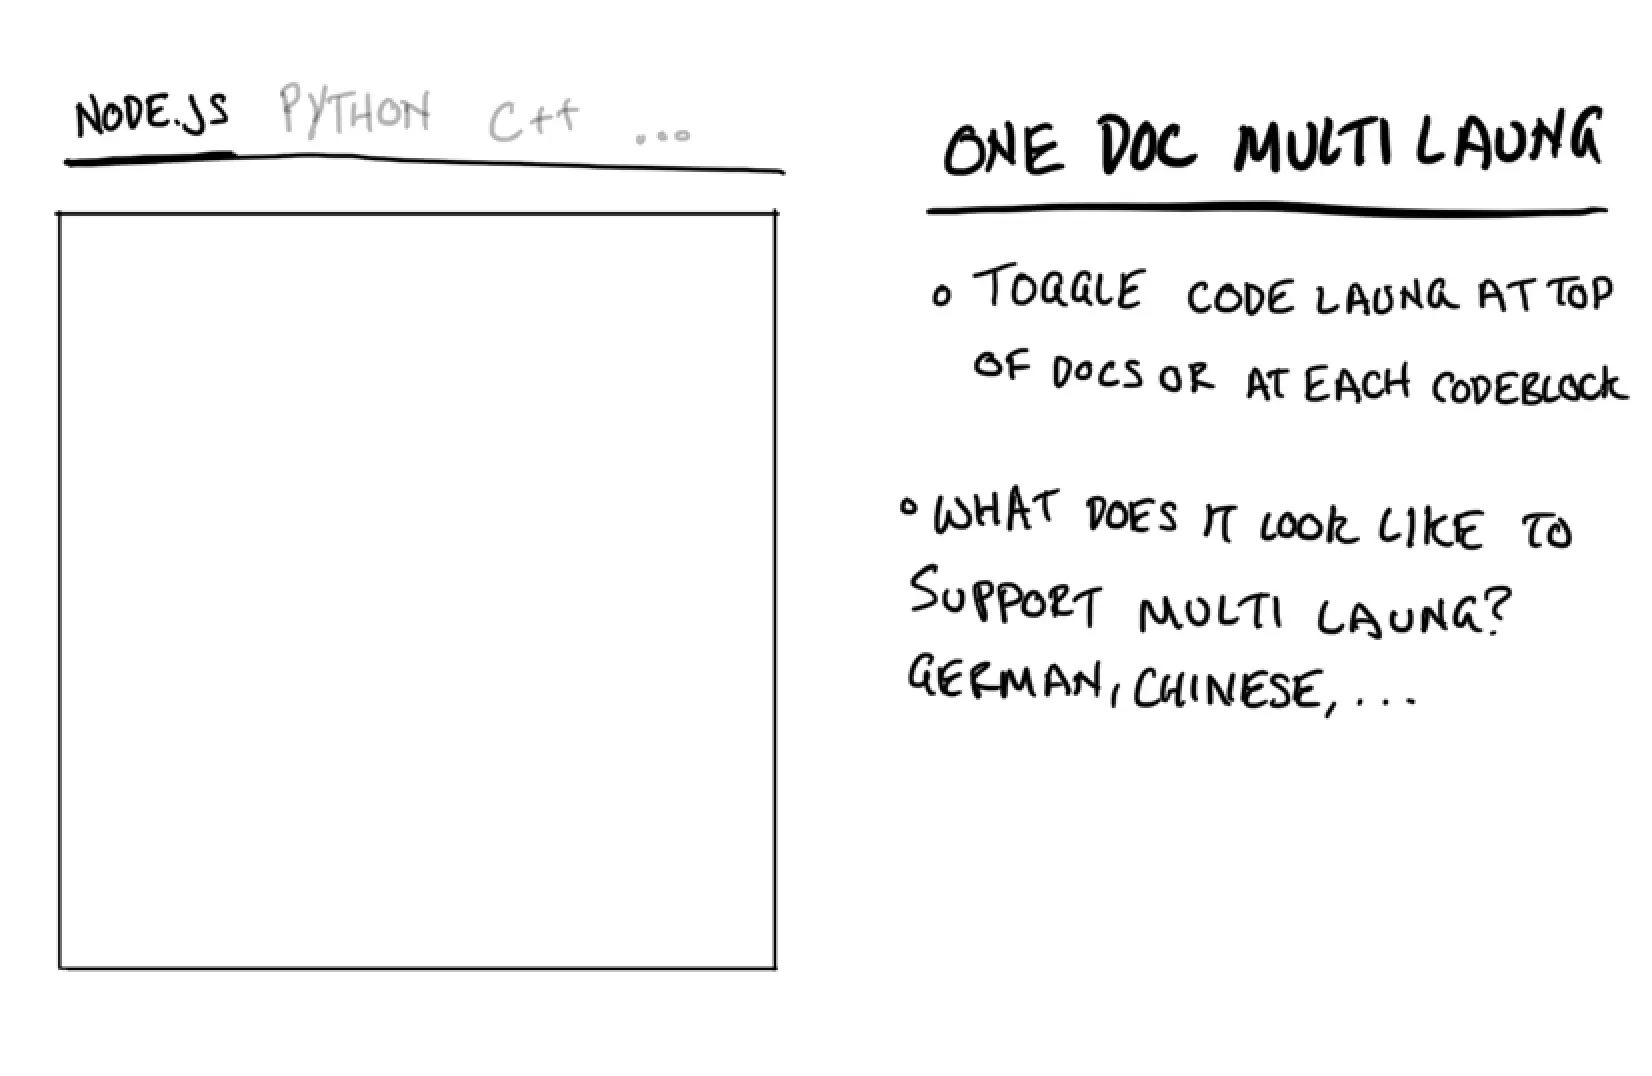 NODE.JS PYTHON C++ ...
ONE DOC MULTI LAUNG
○ TOGGLE CODE LAUNG AT TOP
OF DOCS OR AT EACH CODEBLOCK
○ WHAT DOES IT LOOK LIKE TO
SUPPORT MULTI LAUNG?
GERMAN, CHINESE, ...